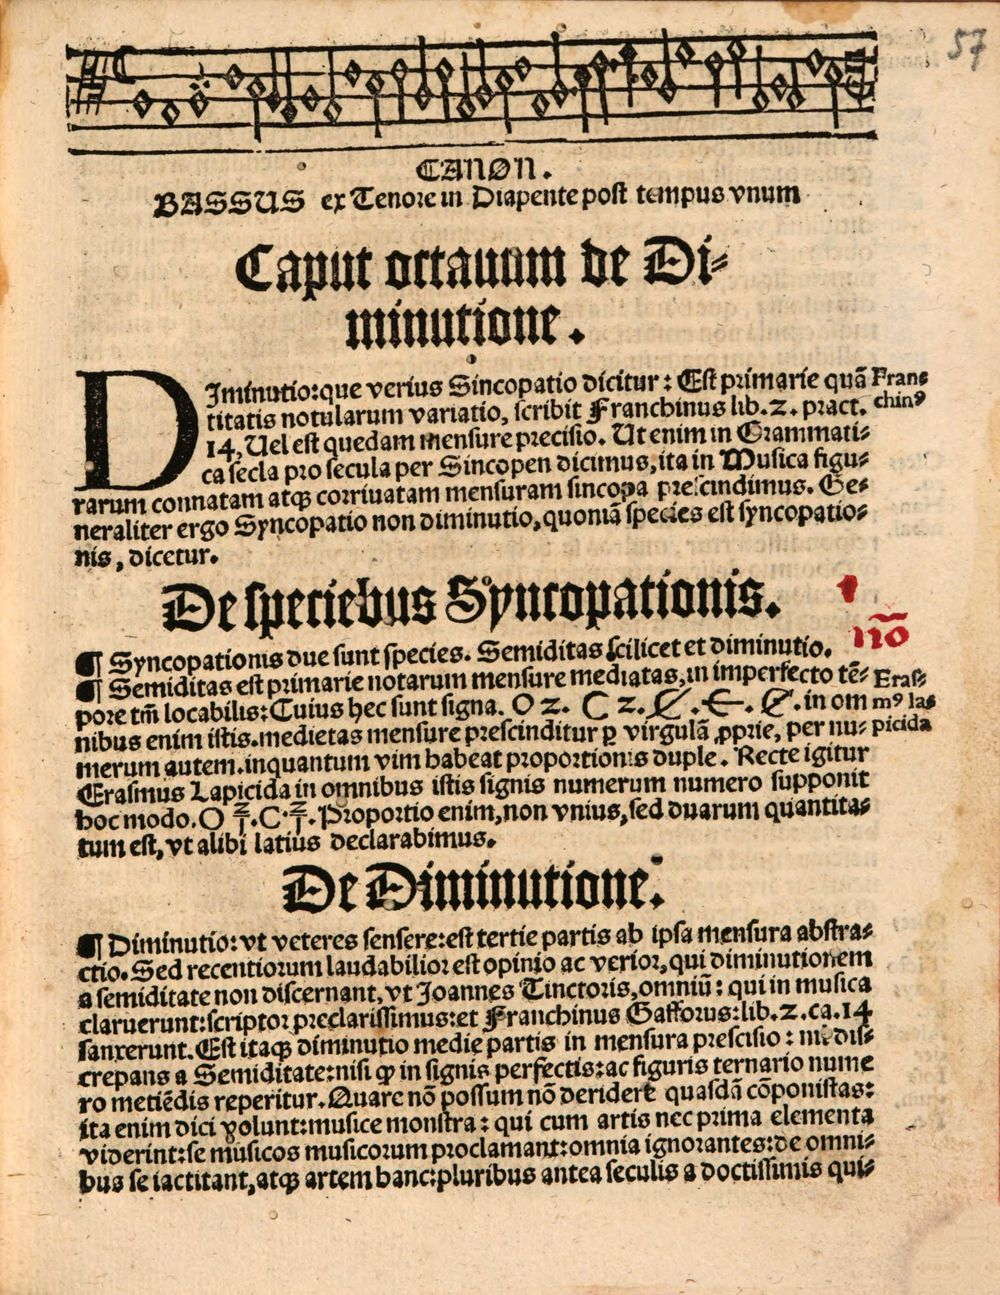 57
CANON.
BASSUS ex Tenore in Diapente post tempus vnum
Caput octauum de Di⸗
minutione.
DIminutio:que verius Sincopatio dicitur: Est primarie quā⸗
titatis notularum variatio, scribit Franchinus lib.2. pract.
14, Uel est quedam mensure precisio. Ut enim in Grammati⸗
ca secla pro secula per Sincopen dicimus, ita in Musica figu⸗
rarum connatam atqꝫ corriuatam mensuram sincopa prescindimus. Ge⸗
neraliter ergo Syncopatio non diminutio, quoniā species est syncopatio⸗
nis, dicetur.
Fran⸗
chinꝰ
De speciebus Syncopationis.
nō
¶ Syncopationis due sunt species. Semiditas scilicet et diminutio.
¶ Semiditas est primarie notarum mensure mediatas, in imperfecto tē⸗
pore tm̄ locabilis: Cuius hec sunt signa. O 2. C 2. in om
nibus enim istis. medietas mensure prescinditur ꝑ virgulā ꝓprie, per nu⸗
merum autem. inquantum vim habeat proportionis duple. Recte igitur
Erasmus Lapicida in omnibus istis signis numerum numero supponit
hoc modo. O 2/1. C 2/1. Proportio enim, non vnius, sed duarum quantita⸗
tum est, vt alibi latius declarabimus.
Eras⸗
mꝰ la⸗
picida
De Diminutione.
¶ Diminutio: vt veteres sensere: est tertie partis ab ipsa mensura abstra⸗
ctio. Sed recentiorum laudabilior est opinio ac verior, qui diminutionem
a semiditate non discernant, vt Joannes Tinctoris, omniū: qui in musica
claruerunt: scriptor preclarissimus: et Franchinus Gafforus: lib.2.ca.14
sanxerunt. Est itaqꝫ diminutio medie partis in mensura prescisio: nil dis⸗
crepans a Semiditate: nisi ꝙ in signis perfectis: ac figuris ternario nume
ro metiēdis reperitur. Quare nō possum nō deridere quasdā cōponistas:
ita enim dici volunt: musice monstra: qui cum artis nec prima elementa
viderint: se musicos musicorum proclamant: omnia ignorantes: de omni⸗
bus se iactitant, atqꝫ artem hanc: pluribus antea seculis a doctissimis qui⸗